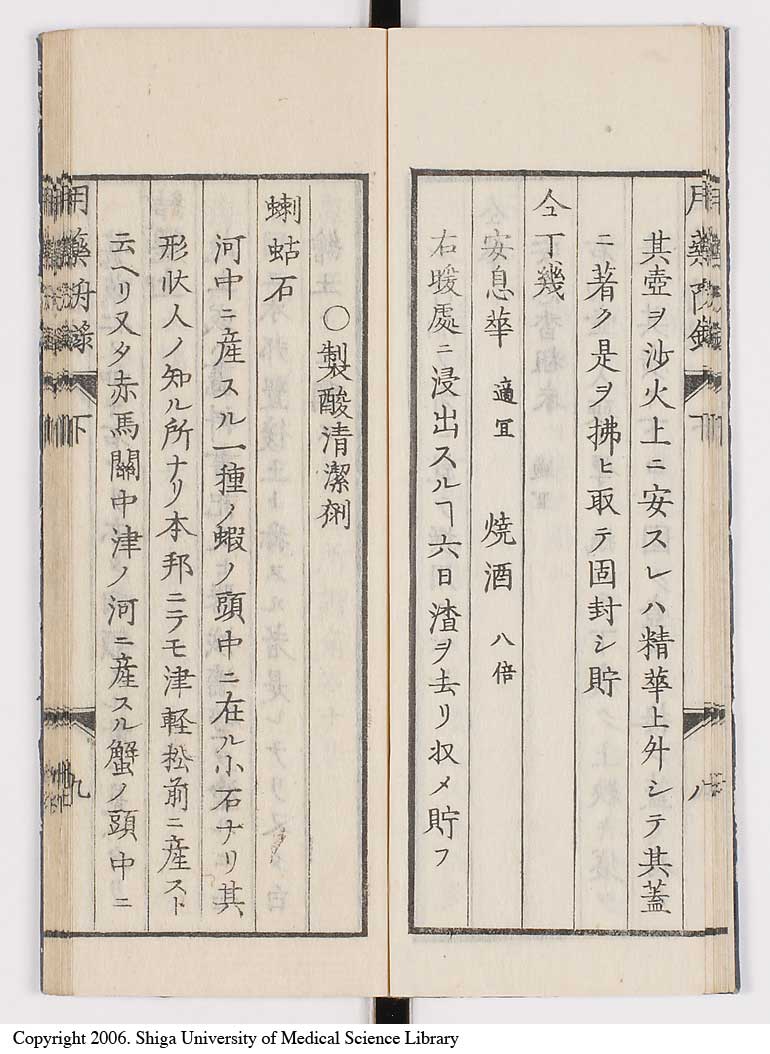 其壺ヲ沙火上ニ安スレハ精華上外シテ其蓋
ニ著ク是ヲ拂ヒ取テ固封シ貯
仝丁幾
仝安息華 適宜 燒酒 八倍
右暖處ニ浸出スルヿ六日渣ヲ去リ収メ貯フ
○製酸清潔劑
蝲蛄石
河中ニ産スル一種ノ蝦ノ頭中ニ在ル小石ナリ其
形狀人ノ知ル所ナリ本邦ニテモ津軽松前ニ産スト
云ヘリ又タ赤馬關中津ノ河ニ産スル蟹ノ頭中ニ
下
九
Copyright 2006. Shiga University of Medical Science Library